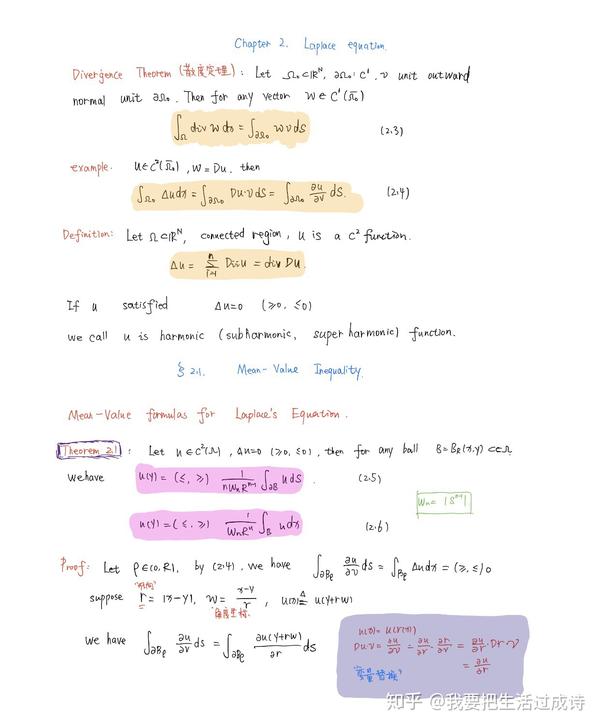 Chapter 2. Laplace equation.
Divergence Theorem (散度定理): Let Ω₀⊂ℝᴺ, ∂Ω₀: C¹, ν unit outward
normal unit ∂Ω₀. Then for any vector w∈C¹(Ω̄₀)
∫_Ω div w dx = ∫_∂Ω₀ w ν ds (2.3)
example. u∈C²(Ω̄₀), w=Du, then
∫_Ω₀ Δu dx = ∫_∂Ω₀ Du·ν ds = ∫_∂Ω₀ ∂u/∂ν ds. (2.4)
Definition: Let Ω⊂ℝᴺ, connected region, u is a C² function.
Δu = Σ_{i=1}^n D_{ii}u = div Du.
If u satisfied Δu=0 (≥0, ≤0)
we call u is harmonic (subharmonic, superharmonic) function.
§ 2.1. Mean-Value Inequality.
Mean-Value formulas for Laplace's Equation.
Theorem 2.1: Let u∈C²(Ω), Δu=0 (≥0, ≤0), then for any ball B=B_R(y) ⊂⊂Ω
we have u(y) = (≤, ≥) 1/(nW_nR^{n-1}) ∫_∂B u ds. (2.5)
W_n = |S^{n-1}|
u(y) = (≤, ≥) 1/(W_nRⁿ) ∫_B u dx (2.6)
Proof: Let ρ∈(0,R), by (2.4), we have ∫_∂Bρ ∂u/∂ν ds = ∫_Bρ Δu dx = (≥, ≤) 0
suppose r = |x-y|, w = (x-y)/r, u(x) ≜ u(y+rw)
we have ∫_∂Bρ ∂u/∂ν ds = ∫_∂Bρ ∂u(y+rw)/∂r ds
u(x) = u(r(x))
Du·ν = ∂u/∂ν = ∂u/∂r · ∂r/∂ν = ∂u/∂r · Dr·ν
= ∂u/∂r
"变量替换"
知乎 @我要把生活过成诗